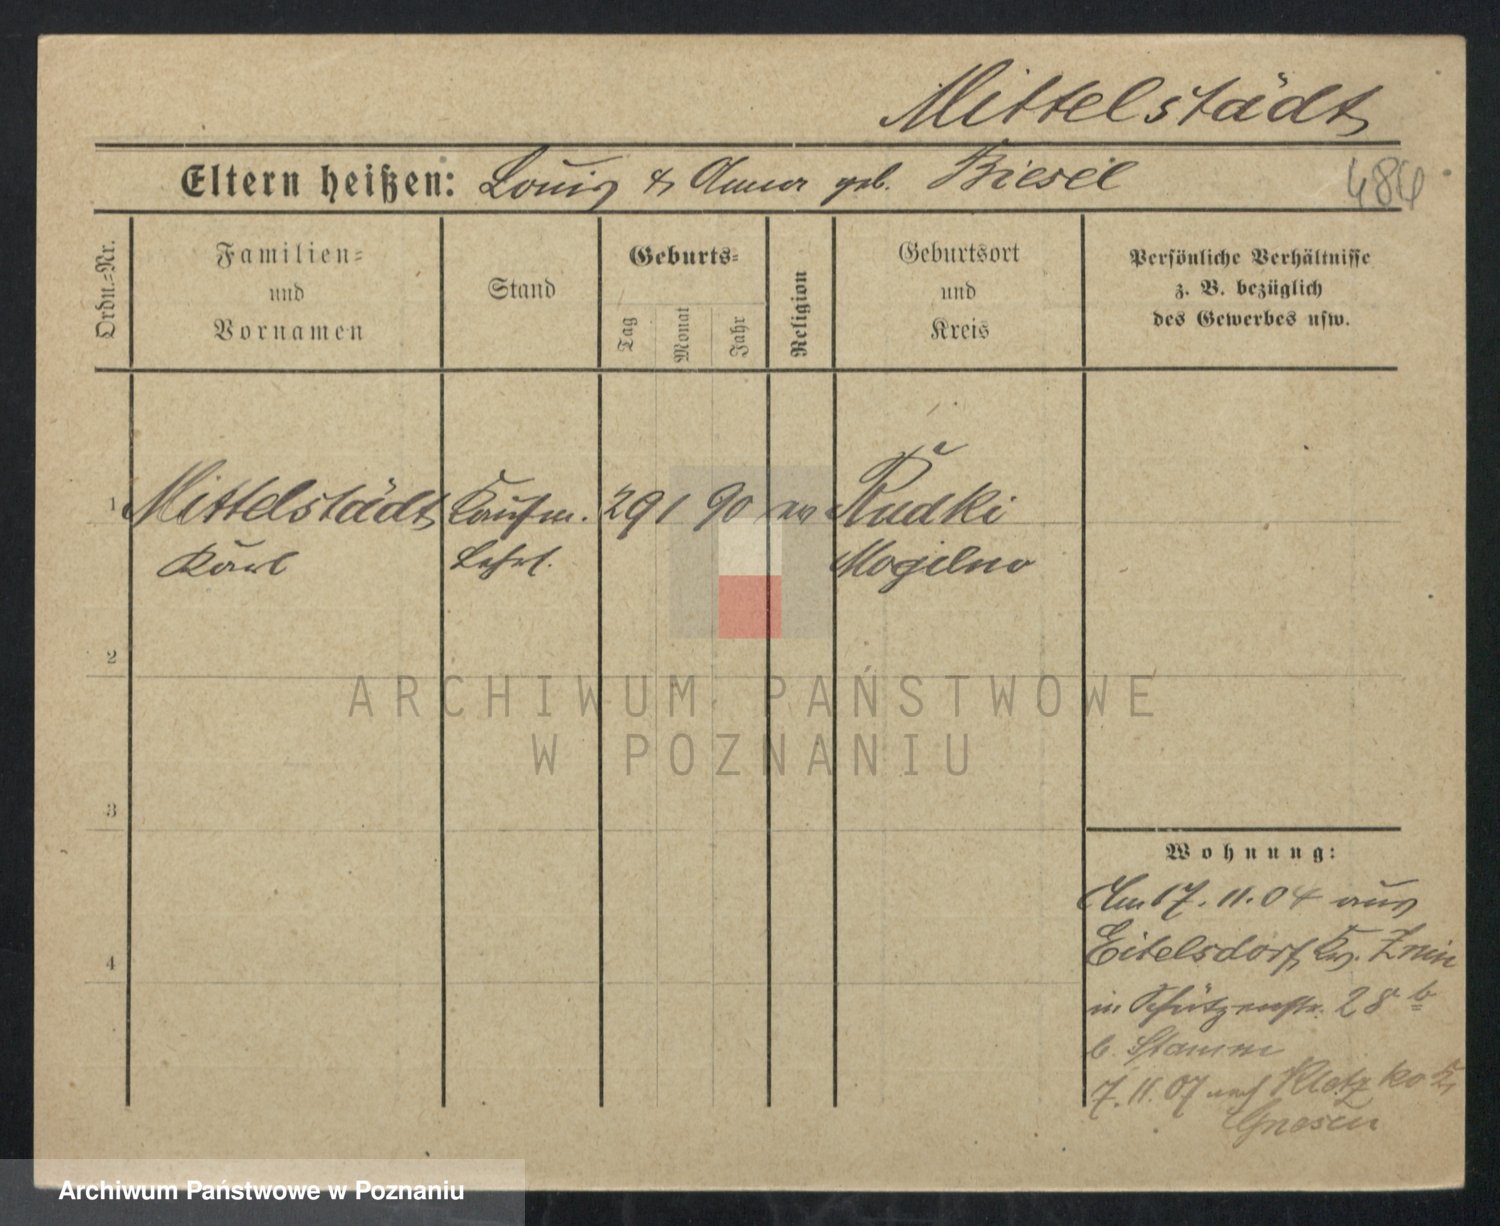 Mittelstädt
Eltern heißen: Louis & Anna geb. Biesel
484
Ordn.=Nr.
Familien=
und
Vornamen
Stand
Geburts=
Tag
Monat
Jahr
Religion
Geburtsort
und
Kreis
Persönliche Verhältnisse
z. B. bezüglich
des Gewerbes usw.
1 Mittelstädt Kaufm. 29 1 90 ev Rudki
Karl Lehrl. Mogilno
2
3
4
ARCHIWUM PAŃSTWOWE
W POZNANIU
Wohnung:
Am 17. 11. 04 aus
Eitelsdorf, Kr. Znin
in Schützenstr. 28 b
b. Stamm
7. 11. 07 nach Kletzko Kr
Gnesen
Archiwum Państwowe w Poznaniu